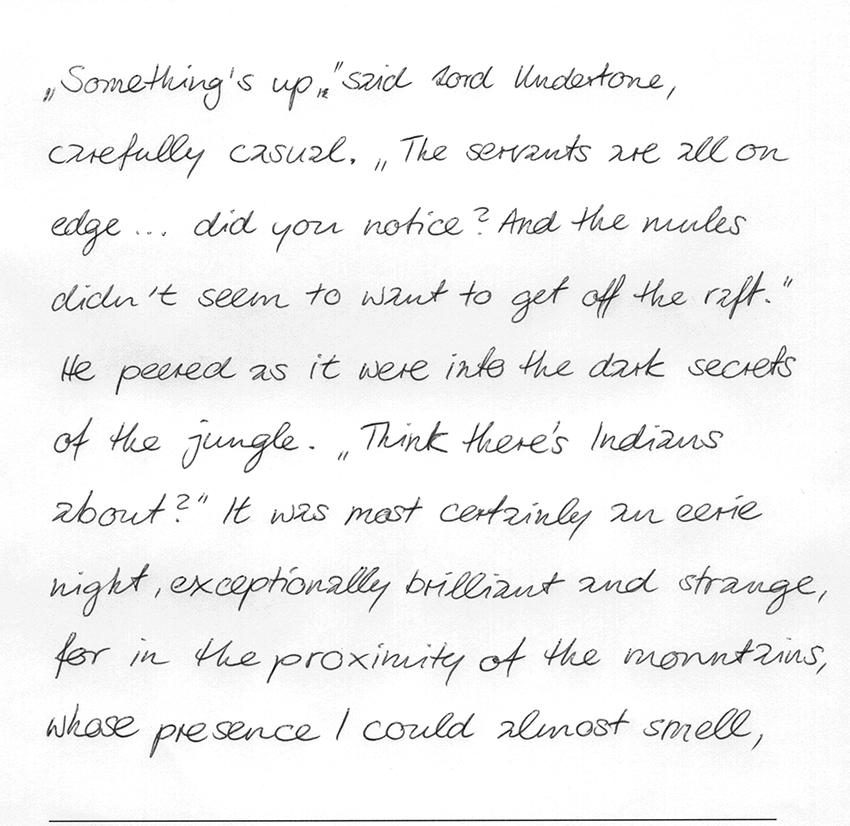 „Something's up," said Lord Undertone,
carefully casual. „The servants are all on
edge ... did you notice? And the mules
didn't seem to want to get off the raft."
He peered as it were into the dark secrets
of the jungle. „Think there's Indians
about?" It was most certainly an eerie
night, exceptionally brilliant and strange,
for in the proximity of the mountains,
whose presence I could almost smell,